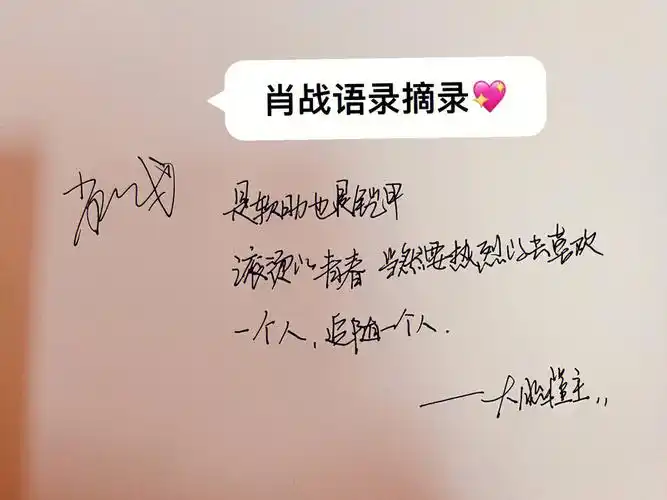 肖战语录摘录💖
肖战
是软肋也是铠甲
滚烫的青春 当然要热烈的去喜欢
一个人,追随一个人.
——大